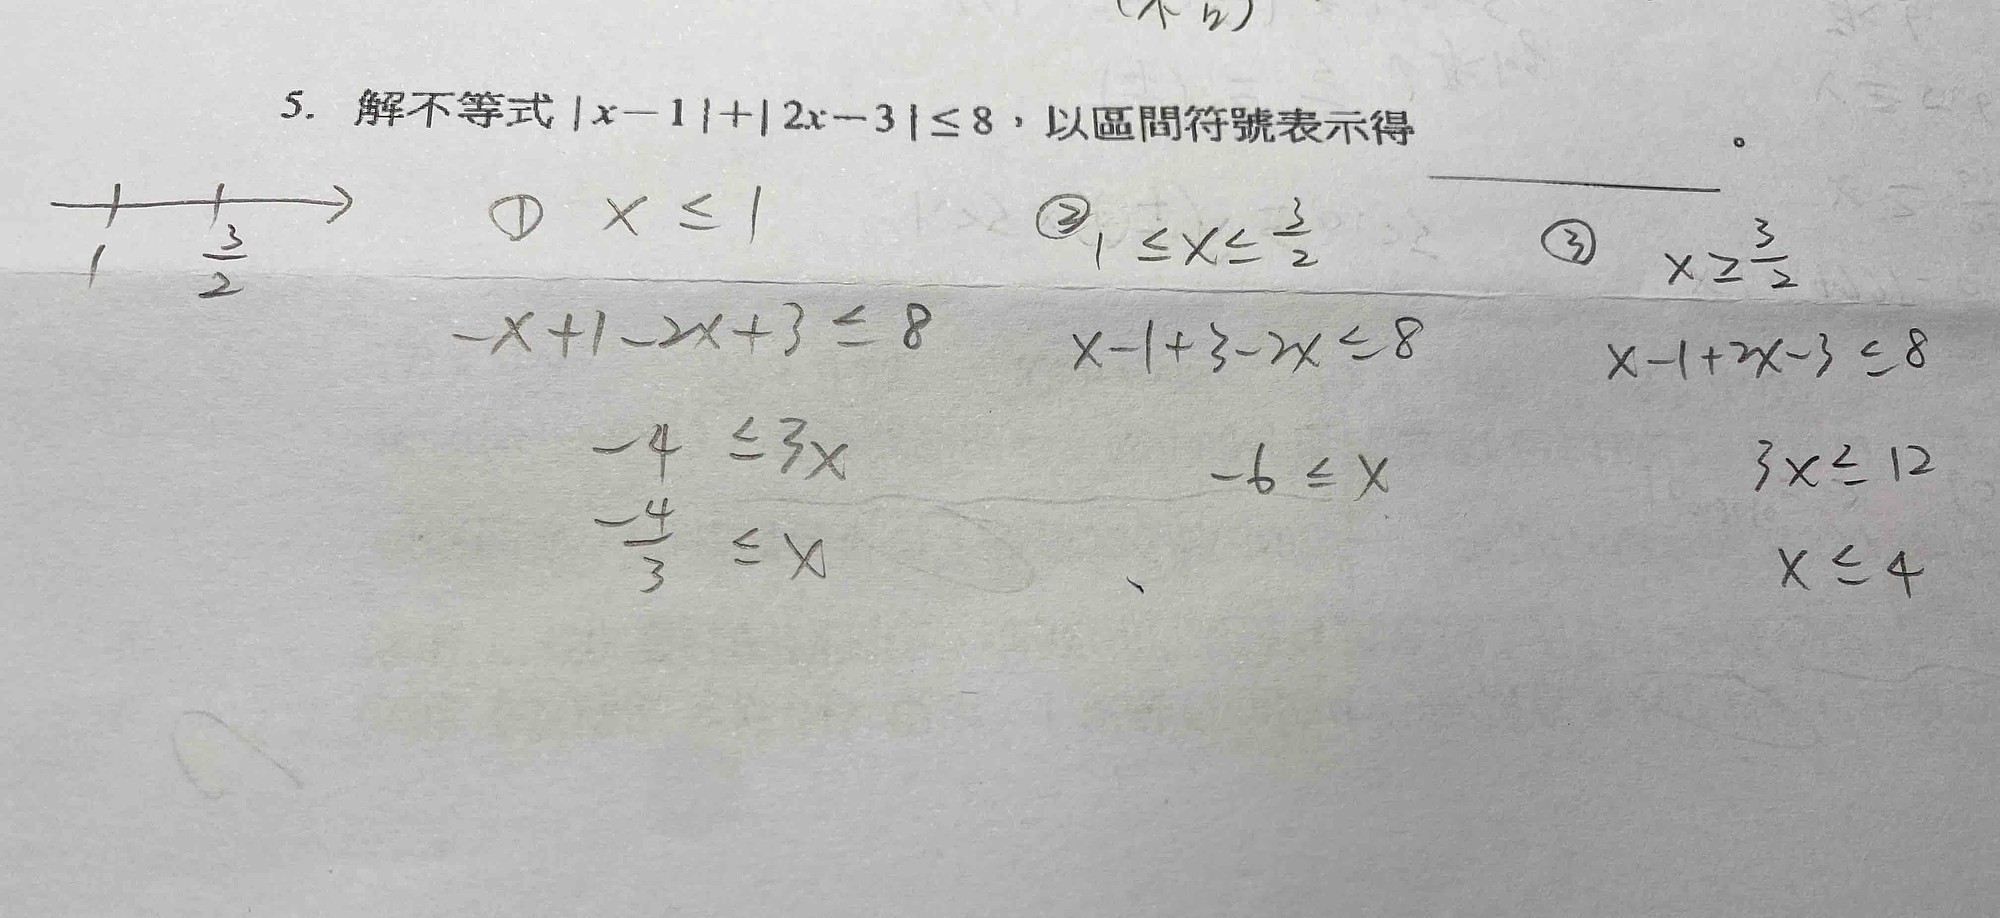 (不合)
5. 解不等式 |x-1|+|2x-3|≤8，以區間符號表示得 ________。
1 3/2
① x ≤ 1
-x+1-2x+3 ≤ 8
-4 ≤ 3x
-4/3 ≤ x
② 1 ≤ x ≤ 3/2
x-1+3-2x ≤ 8
-6 ≤ x
③ x ≥ 3/2
x-1+2x-3 ≤ 8
3x ≤ 12
x ≤ 4